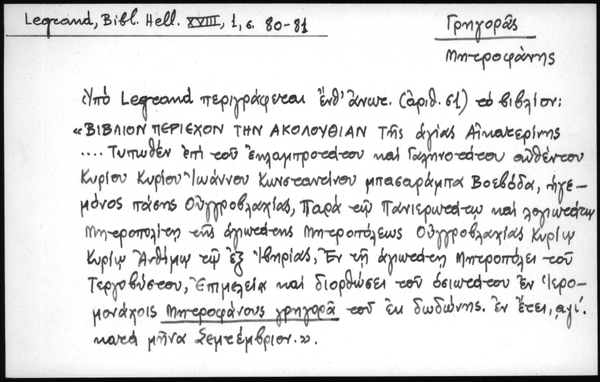 Legrand, Bibl. Hell. XVIII, 1, σ. 80-81
Γρηγορᾶς
Μητροφάνης
Ὑπὸ Legrand περιγράφεται ἔνθ' ἄνωτ. (ἀριθ. 61) τὸ βιβλίον:
«ΒΙΒΛΙΟΝ ΠΕΡΙΕΧΟΝ ΤΗΝ ΑΚΟΛΟΥΘΙΑΝ τῆς ἁγίας Αἰκατερίνης
.... Τυπωθὲν ἐπὶ τοῦ ἐκλαμπροτάτου καὶ Γαληνοτάτου αὐθέντου
Κυρίου Κυρίου Ἰωάννου Κωνσταντίνου μπασαράμπα Βοεβόδα, ἡγε-
μόνος πάσης Οὐγγροβλαχίας, Παρὰ τῷ Πανιερωτάτῳ καὶ λογιωτάτῳ
Μητροπολίτῃ τῆς ἁγιωτάτης Μητροπόλεως Οὐγγροβλαχίας Κυρίῳ
Κυρίῳ Ἀνθίμῳ τῷ ἐξ Ἰβηρίας, Ἐν τῇ ἁγιωτάτῃ Μητροπόλει τοῦ
Τεργοβύστου, Ἐπιμελείᾳ καὶ διορθώσει τοῦ ὁσιωτάτου ἐν Ἱερο-
μονάχοις Μητροφάνους γρηγορᾶ τοῦ ἐκ δωδώνης. ἐν ἔτει, αψι΄.
κατὰ μῆνα Σεπτέμβριον.».